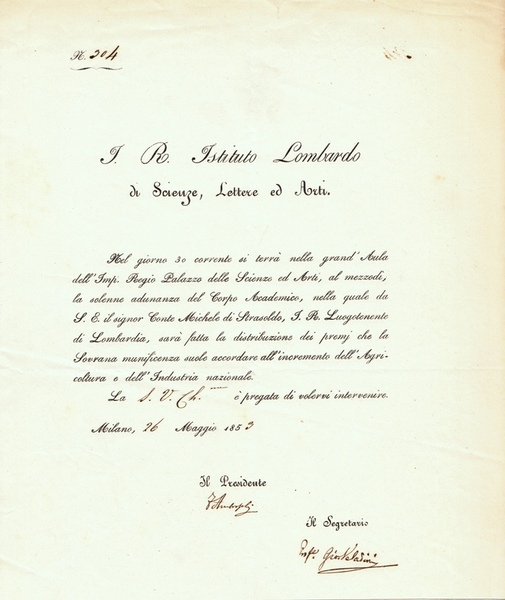 N. 204
I. R. Istituto Lombardo
di Scienze, Lettere ed Arti.
Nel giorno 30 corrente si terrà nella grand' Aula
dell' Imp. Regio Palazzo delle Scienze ed Arti, al mezzodì,
la solenne adunanza del Corpo Academico, nella quale da
S. E. il signor Conte Michele di Strasoldo, I. R. Luogotenente
di Lombardia, sarà fatta la distribuzione dei premj che la
Sovrana munificenza suole accordare all' incremento dell' Agri-
coltura e dell' Industria nazionale.
La S. V. Ch.ma è pregata di volervi intervenire.
Milano, 26 Maggio 1853
Il Presidente
Il Segretario